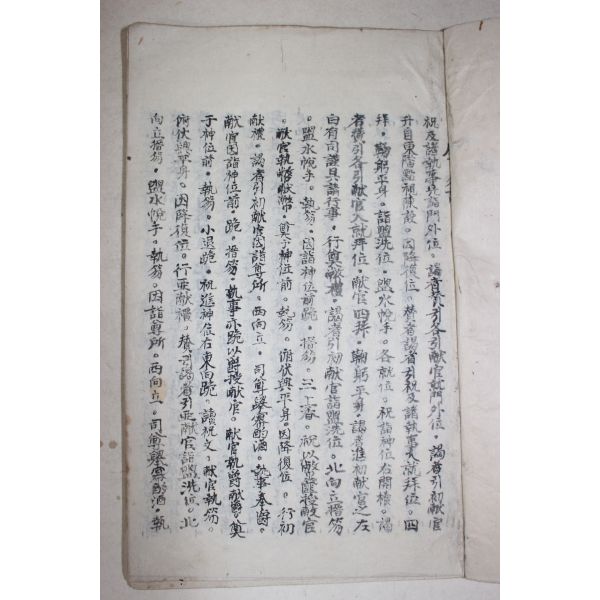 祝及諸執事先詣門外位。謁者贊引各引獻官就門外位。謁者引初獻官
升自東階點視陳設。因降復位。贊者謁者引祝及諸執事入就拜位。四
拜。鞠躬平身。詣盥洗位。盥水帨手。各就位。祝詣神位右開櫝。謁
者贊引各引獻官入就拜位。獻官四拜。鞠躬平身。謁者進初獻官之左
白有司謹具請行事。行奠幣禮。謁者引初獻官詣盥洗位。北向立搢笏
。盥水帨手。執笏。因詣神位前跪。搢笏。三上香。祝以幣篚授獻官
。獻官執幣獻幣。奠于神位前。執笏。俯伏興平身。因降復位。行初
獻禮。謁者引初獻官因詣尊所。西向立。司尊擧冪酌酒。執事奉爵。
獻官因詣神位前。跪。搢笏。執事亦跪以爵授獻官。獻官執爵獻爵。奠
于神位前。執笏。小退跪。祝進神位右東向跪。讀祝文。獻官執笏。
俯伏興平身。因降復位。行亞獻禮。贊引謁者引亞獻官詣盥洗位。北
向立搢笏。盥水帨手。執笏。因詣尊所。西向立。司尊擧冪酌酒。執